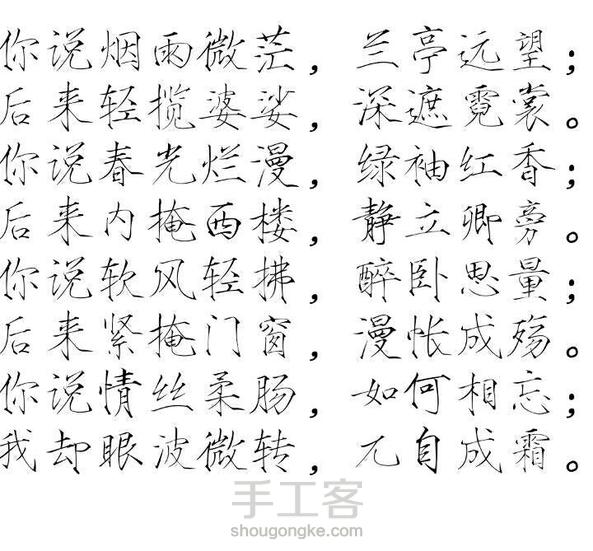 你说烟雨微茫，兰亭远望；
后来轻揽婆娑，深遮霓裳。
你说春光烂漫，绿袖红香；
后来内掩西楼，静立卿旁。
你说软风轻拂，醉卧思量；
后来紧掩门窗，漫帐成殇。
你说情丝柔肠，如何相忘；
我却眼波微转，兀自成霜。
手工客
shougongke.com